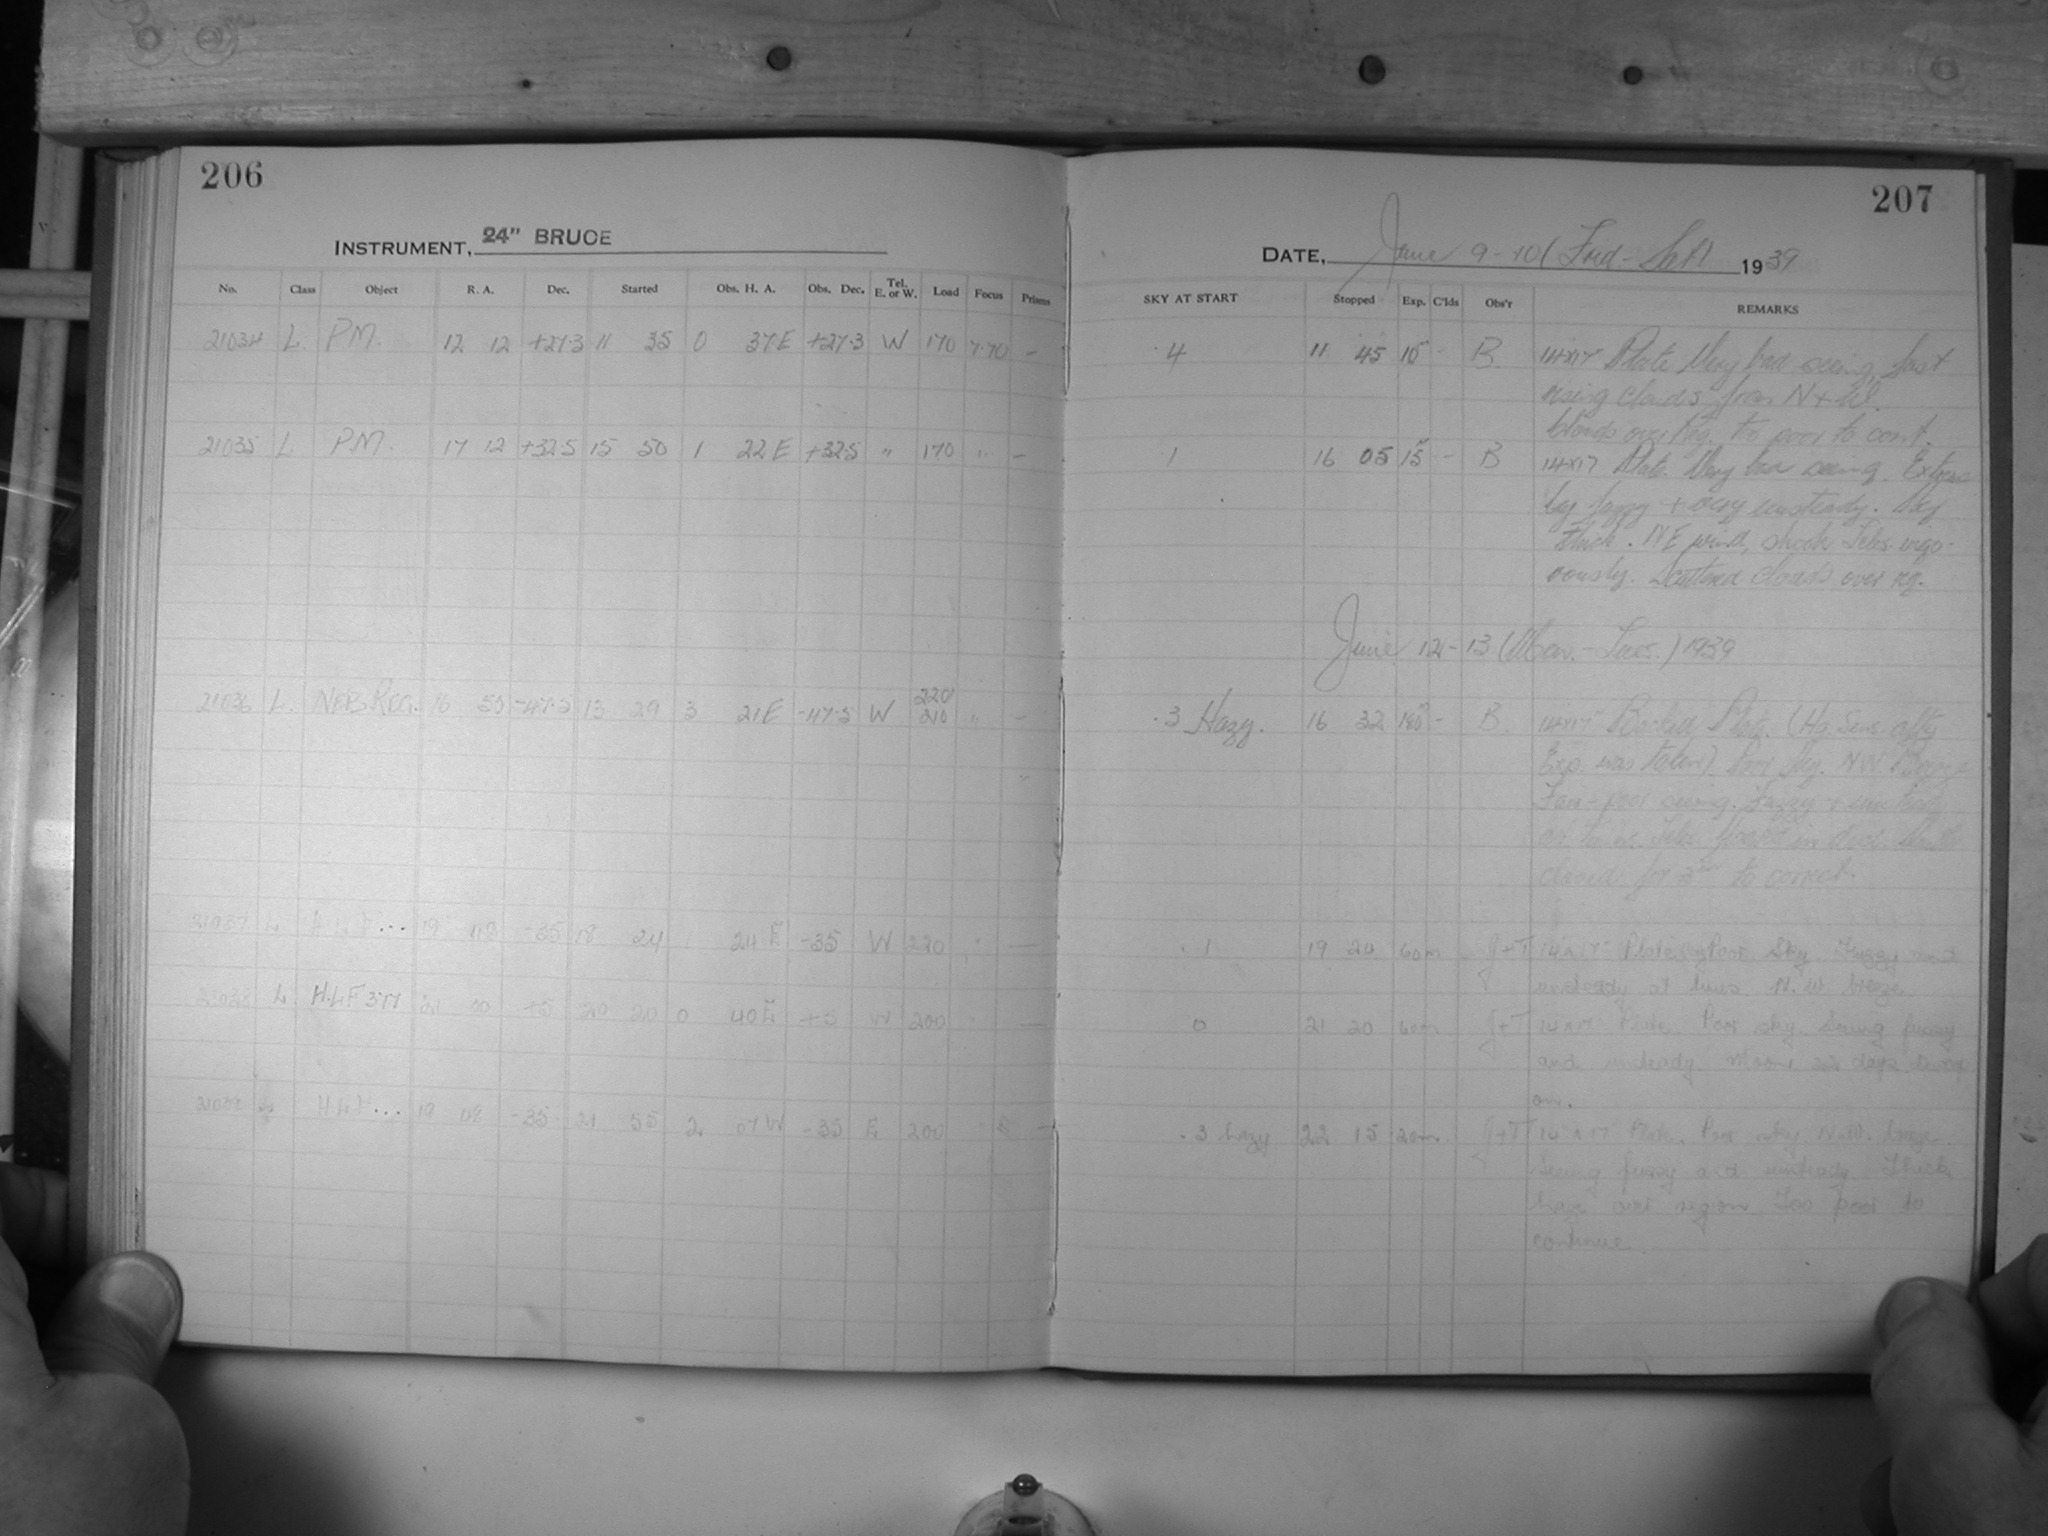 206
INSTRUMENT, 24" BRUCE
No. Class Object R. A. Dec. Started Obs. H. A. Obs. Dec. Tel. E. or W. Load Focus Prisms
21034 L. P.M. 12 12 +27.3 11 35 0 37E +27.3 W 170 7.70 -
21035 L P.M. 17 12 +32.5 15 50 1 22E +32.5 " 170 " -
21036 L. NEB. REG. 16 50 -47.5 13 29 3 21E -47.5 W 220/210 " -
21037 L 19 -35 18 24 24E -35 W 220 -
21038 L H.L.F 377 21 +5 20 20 0 40E +5 W 200 -
21039 19 -35 21 55 2 07W -35 E 200 -
207
DATE, June 9-10 1939
SKY AT START Stopped Exp. C'lds Obs'r REMARKS
.4 11 45 10m - B. 14x17 Plate. Very bad seeing, fast
rising clouds from N +
clouds over reg. too poor to cont.
.1 16 05 15m - B 14x17 Plate. Very bad seeing.
fuzzy + very unsteady. Sky
thick. NE wind, shook Teles. vigo-
rously. Scattered clouds over reg.
June 12-13 (Mon.-Tues.) 1939
.3 Hazy. 16 32 180m - B. 14x17 Backed Plate. (Hg. Sens. after
Exp. was taken). Poor sky. NW. Breeze
Fair-poor seeing. Fuzzy + unsteady
at times. Teles.
closed for to correct.
.1 19 24 60m J+T 14x17 Plate. Poor Sky. Fuzzy and
unsteady at times. N.W. breeze
0 21 20 60m J+T 14x17 Plate. Poor sky. Seeing fuzzy
and unsteady. Moon
on.
.3 hazy 22 15 20m J+T 14x17 Plate. Poor sky. N.W. breeze
Seeing fuzzy and unsteady. Thick
haze over region. Too poor to
continue